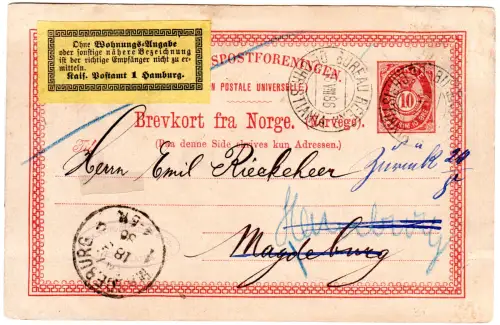 Ohne Wohnungs-Angabe
oder sonstige nähere Bezeichnung
ist der richtige Empfänger nicht zu er-
mitteln.
Kais. Postamt 1 Hamburg.
SPOSTFORENINGEN.
ON POSTALE UNIVERSELLE
BUREAU
10
Brevkort fra Norge. (Norvège).
(Paa denne Side skrives kun Adressen.)
Til
Herrn Emil Rieckeheer
Zurück 20
Hamburg
Magdeburg